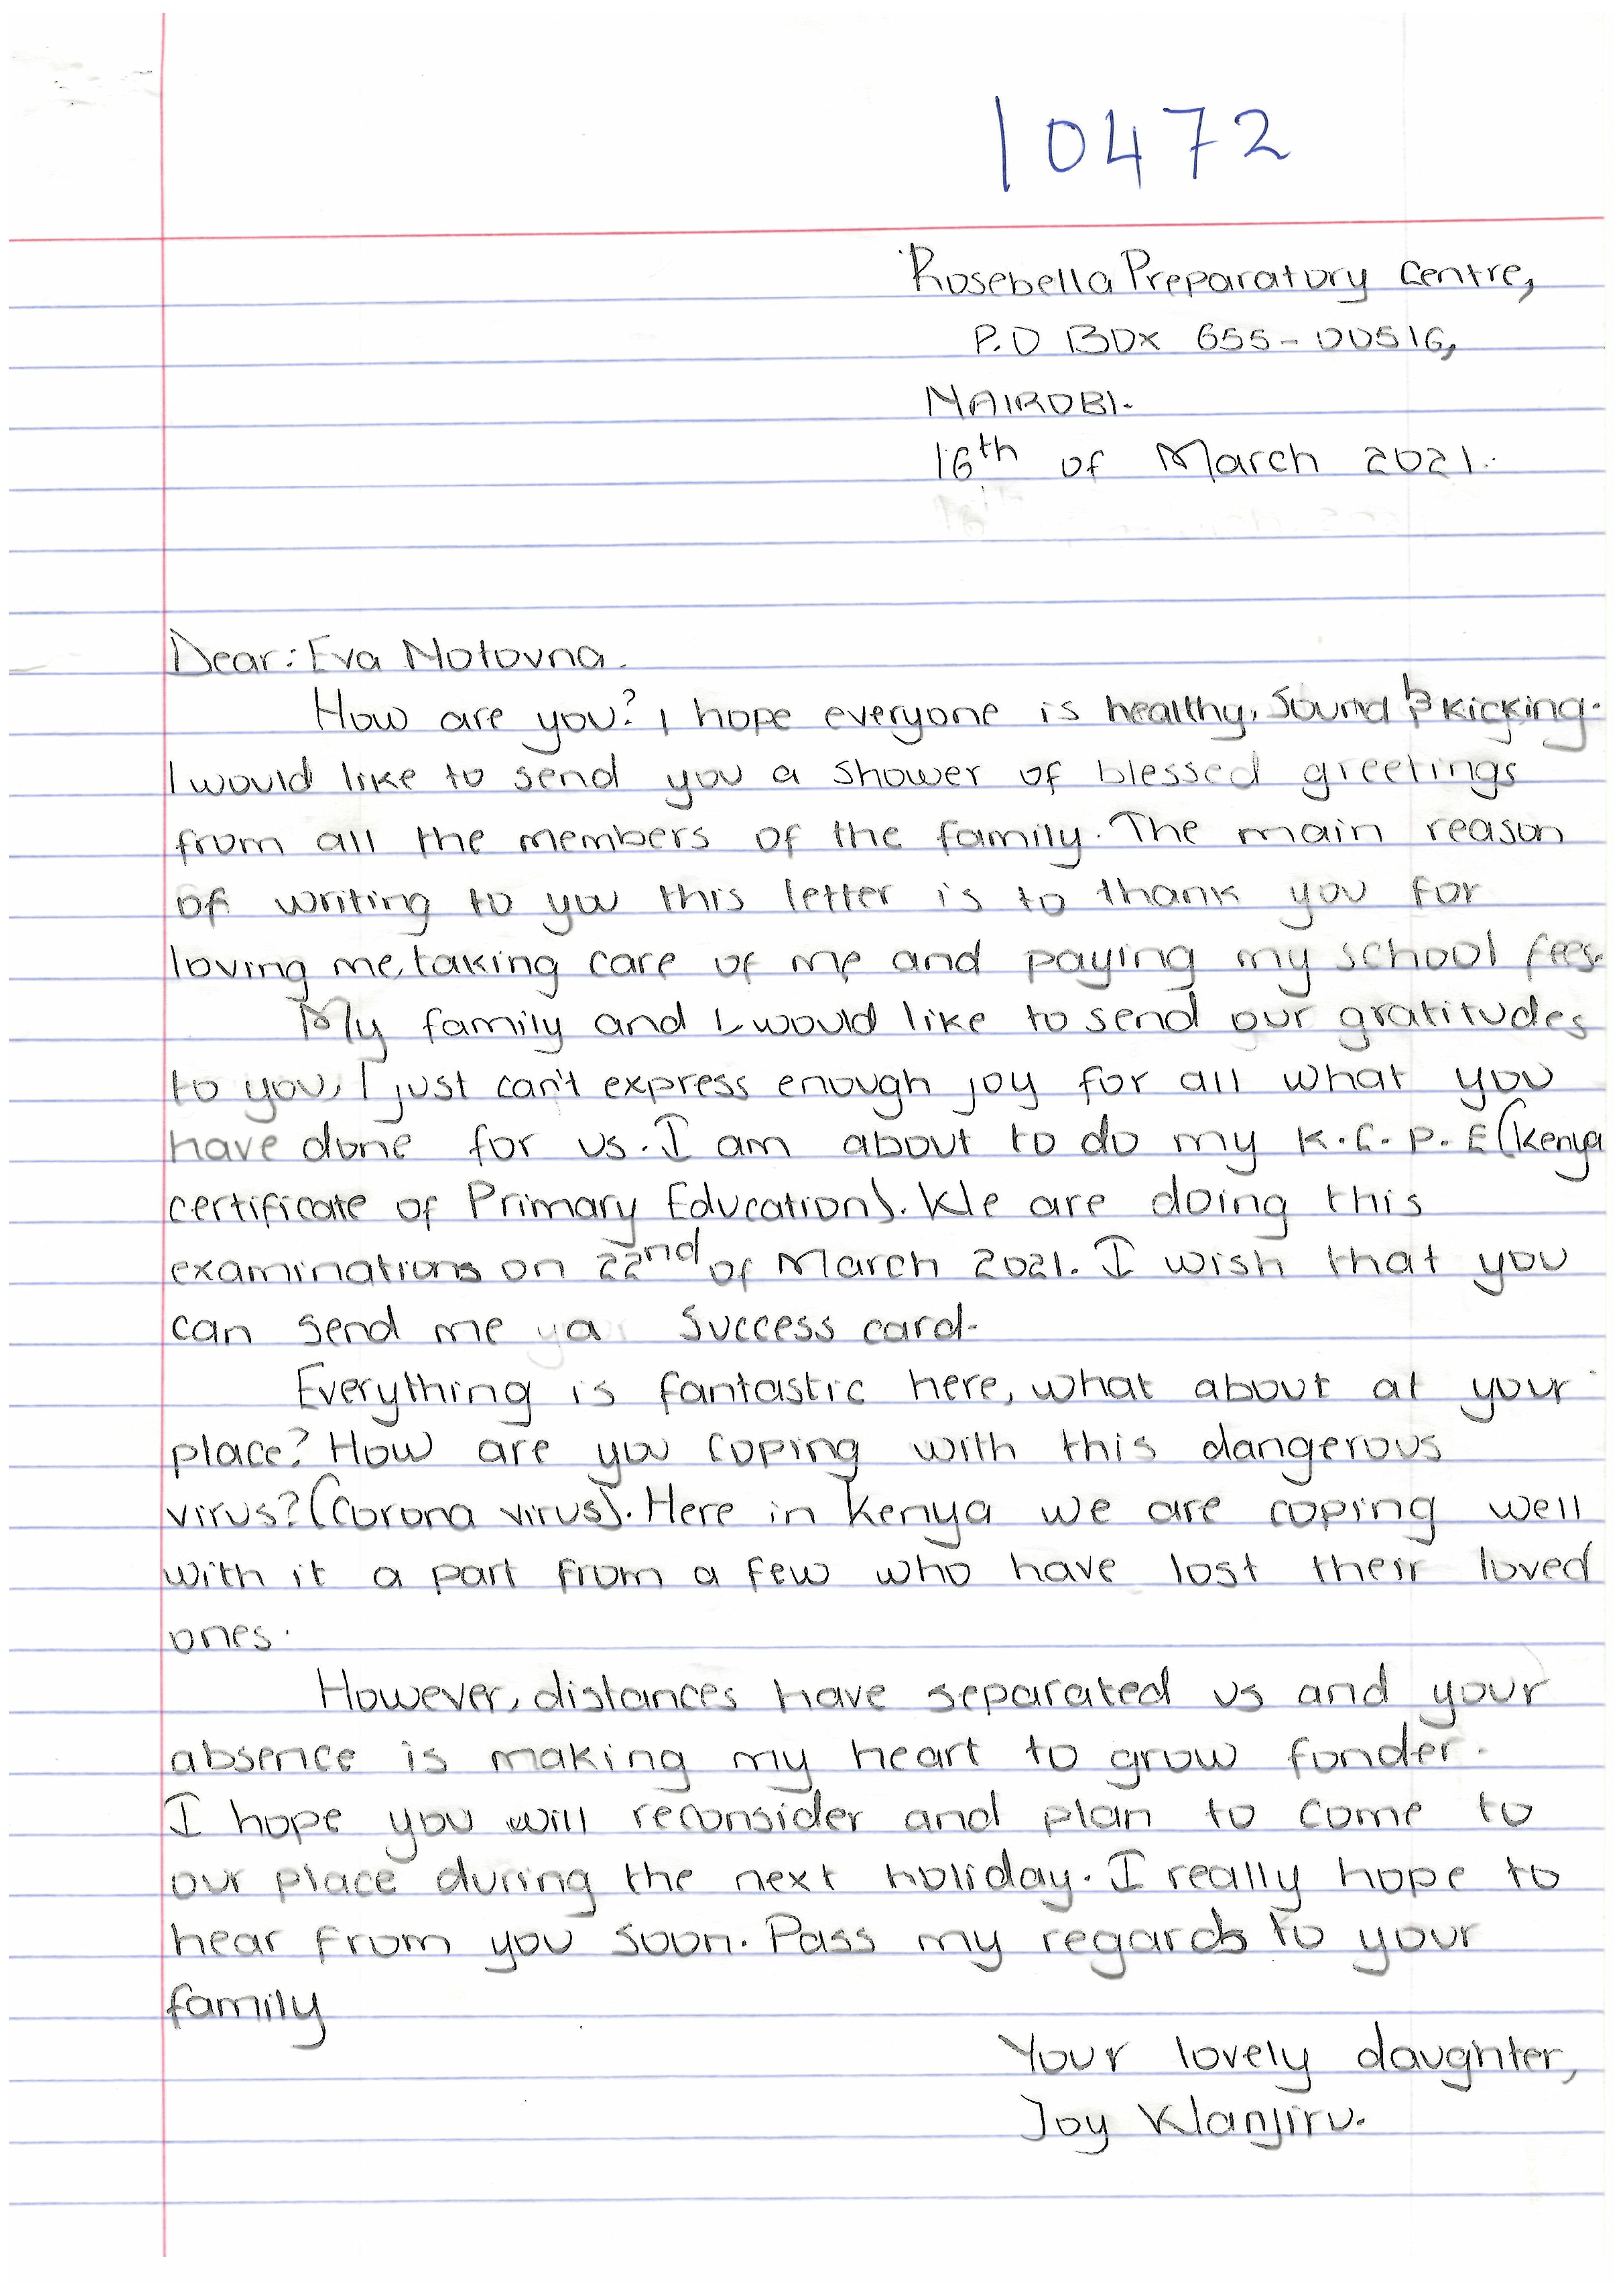 10472
Rosebella Preparatory Centre,
P.O BOX 655-00516,
NAIROBI.
16th of March 2021.
Dear: Eva Notovna.
How are you? I hope everyone is healthy, Sound & kicking.
I would like to send you a shower of blessed greetings
from all the members of the family. The main reason
of writing to you this letter is to thank you for
loving me, taking care of me and paying my school fees.
My family and I would like to send our gratitudes
to you, I just can't express enough joy for all what you
have done for us. I am about to do my K.C.P.E (Kenya
certificate of Primary Education). We are doing this
examinations on 22nd of March 2021. I wish that you
can send me a Success card.
Everything is fantastic here, what about at your
place? How are you coping with this dangerous
virus? (Corona virus). Here in Kenya we are coping well
with it a part from a few who have lost their loved
ones.
However, distances have separated us and your
absence is making my heart to grow fonder.
I hope you will reconsider and plan to come to
our place during the next holiday. I really hope to
hear from you soon. Pass my regards to your
family
Your lovely daughter,
Joy Wanjiru.